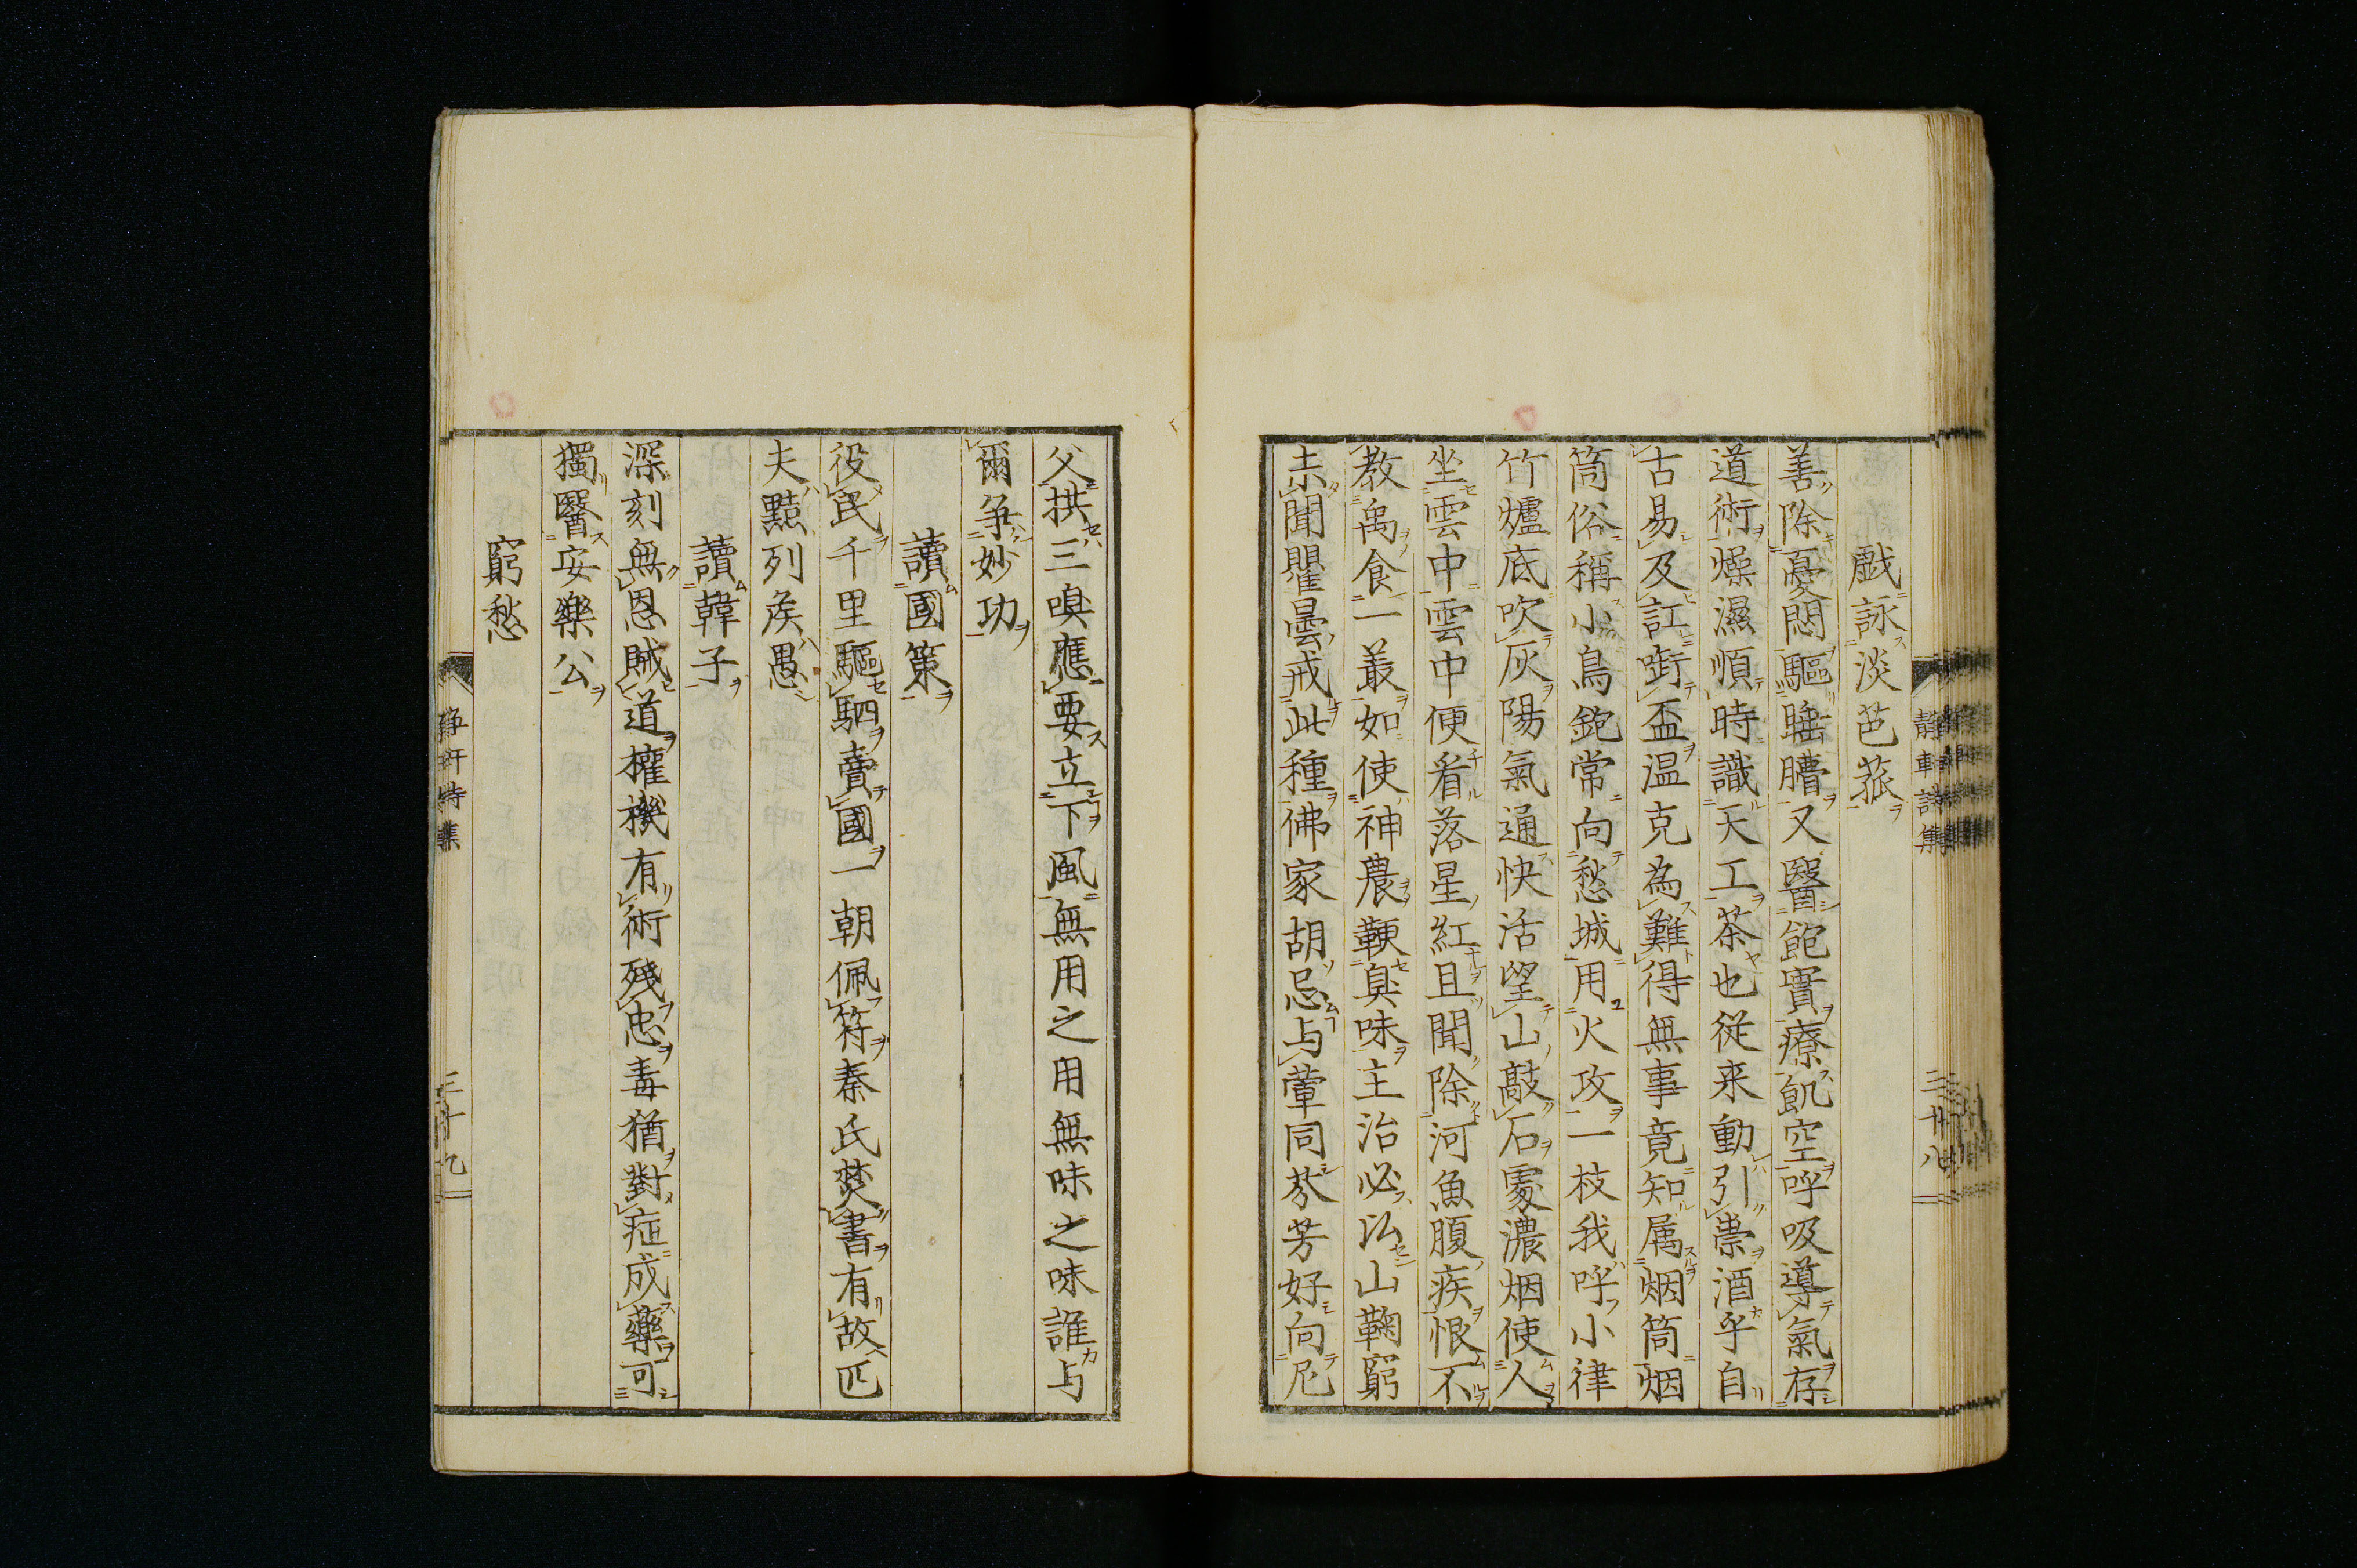 戲詠淡芭菰
善除憂悶驅睡膳又醫飽實療飢空呼吸導氣存
道術燥濕順時識天工茶也從来動引祟酒乎自
古易及訌啣盃温克為難得無事竟知属烟筒烟
筒俗稱小鳥銃常向愁城用火攻一枝我呼小律
竹爐底吹灰陽氣通快活望山敲石處濃烟使人
坐雲中雲中便看落星紅且聞除河魚腹疾恨不
教禹食一叢如使神農鞭臭味主治必訟山鞠窮
未聞瞿曇戒此種佛家胡忌与葷同芬芳好向尼
父拱三嗅應要立下風無用之用無味之味誰与
爾争妙功
讀國策
役民千里驅駟賣國一朝佩符秦氏焚書有故匹
夫黠列矦愚
讀韓子
深刻無恩賊道權機有術殘忠毒猶對症成藥可
獨醫安樂公
窮愁
靜軒詩集
二十八
靜軒詩集
二十九